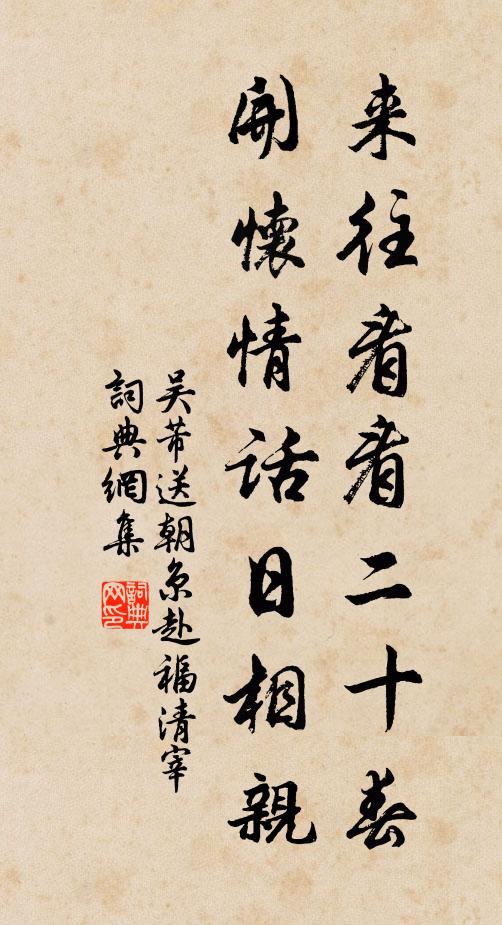 来往看看二十春
開懷情話日相親
吴芾送朝京赴福清宰
詞典網集
詞典网印